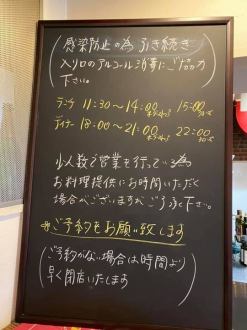 感染防止の為 引き続き
入り口のアルコール消毒にご協力
下さい。
ランチ 11:30〜14:00 ラストオーダー 15:00
ディナー 18:00〜21:00 ラストオーダー 22:00
少人数で営業を行っている為
お料理提供にお時間いただく
場合がございますがご了承下さい。
※ご予約をお願い致します
(ご予約がない場合は時間より
早く閉店いたします)